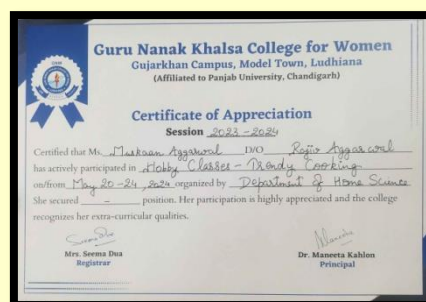 Guru Nanak Khalsa College for Women
Gujarkhan Campus, Model Town, Ludhiana
(Affiliated to Panjab University, Chandigarh)
Certificate of Appreciation
Session 2023-2024
Certified that Ms. Muskaan Aggarwal D/O Rajiv Aggarwal
has actively participated in Hobby Classes - Trendy Cooking
on/from May 20-24, 2024 organized by Department of Home Science
She secured - position. Her participation is highly appreciated and the college
recognizes her extra-curricular qualities.
Mrs. Seema Dua
Registrar
Dr. Maneeta Kahlon
Principal